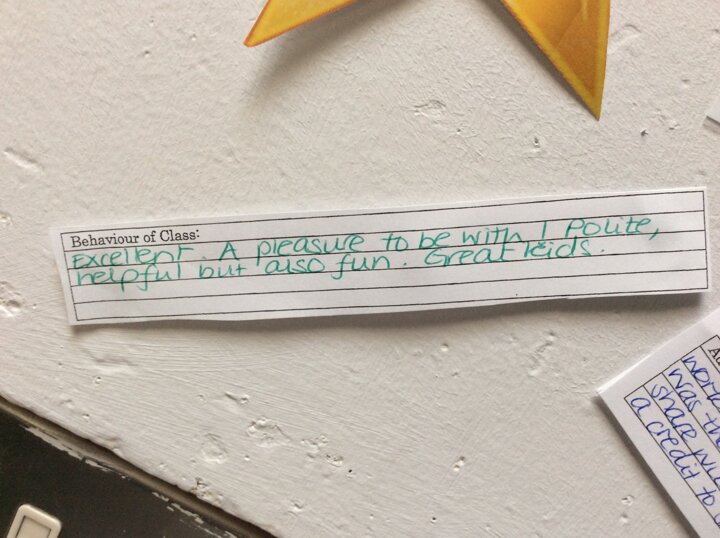 Behaviour of Class:
Excellent. A pleasure to be with! Polite,
helpful but also fun. Great kids.
was the
share
a credit to